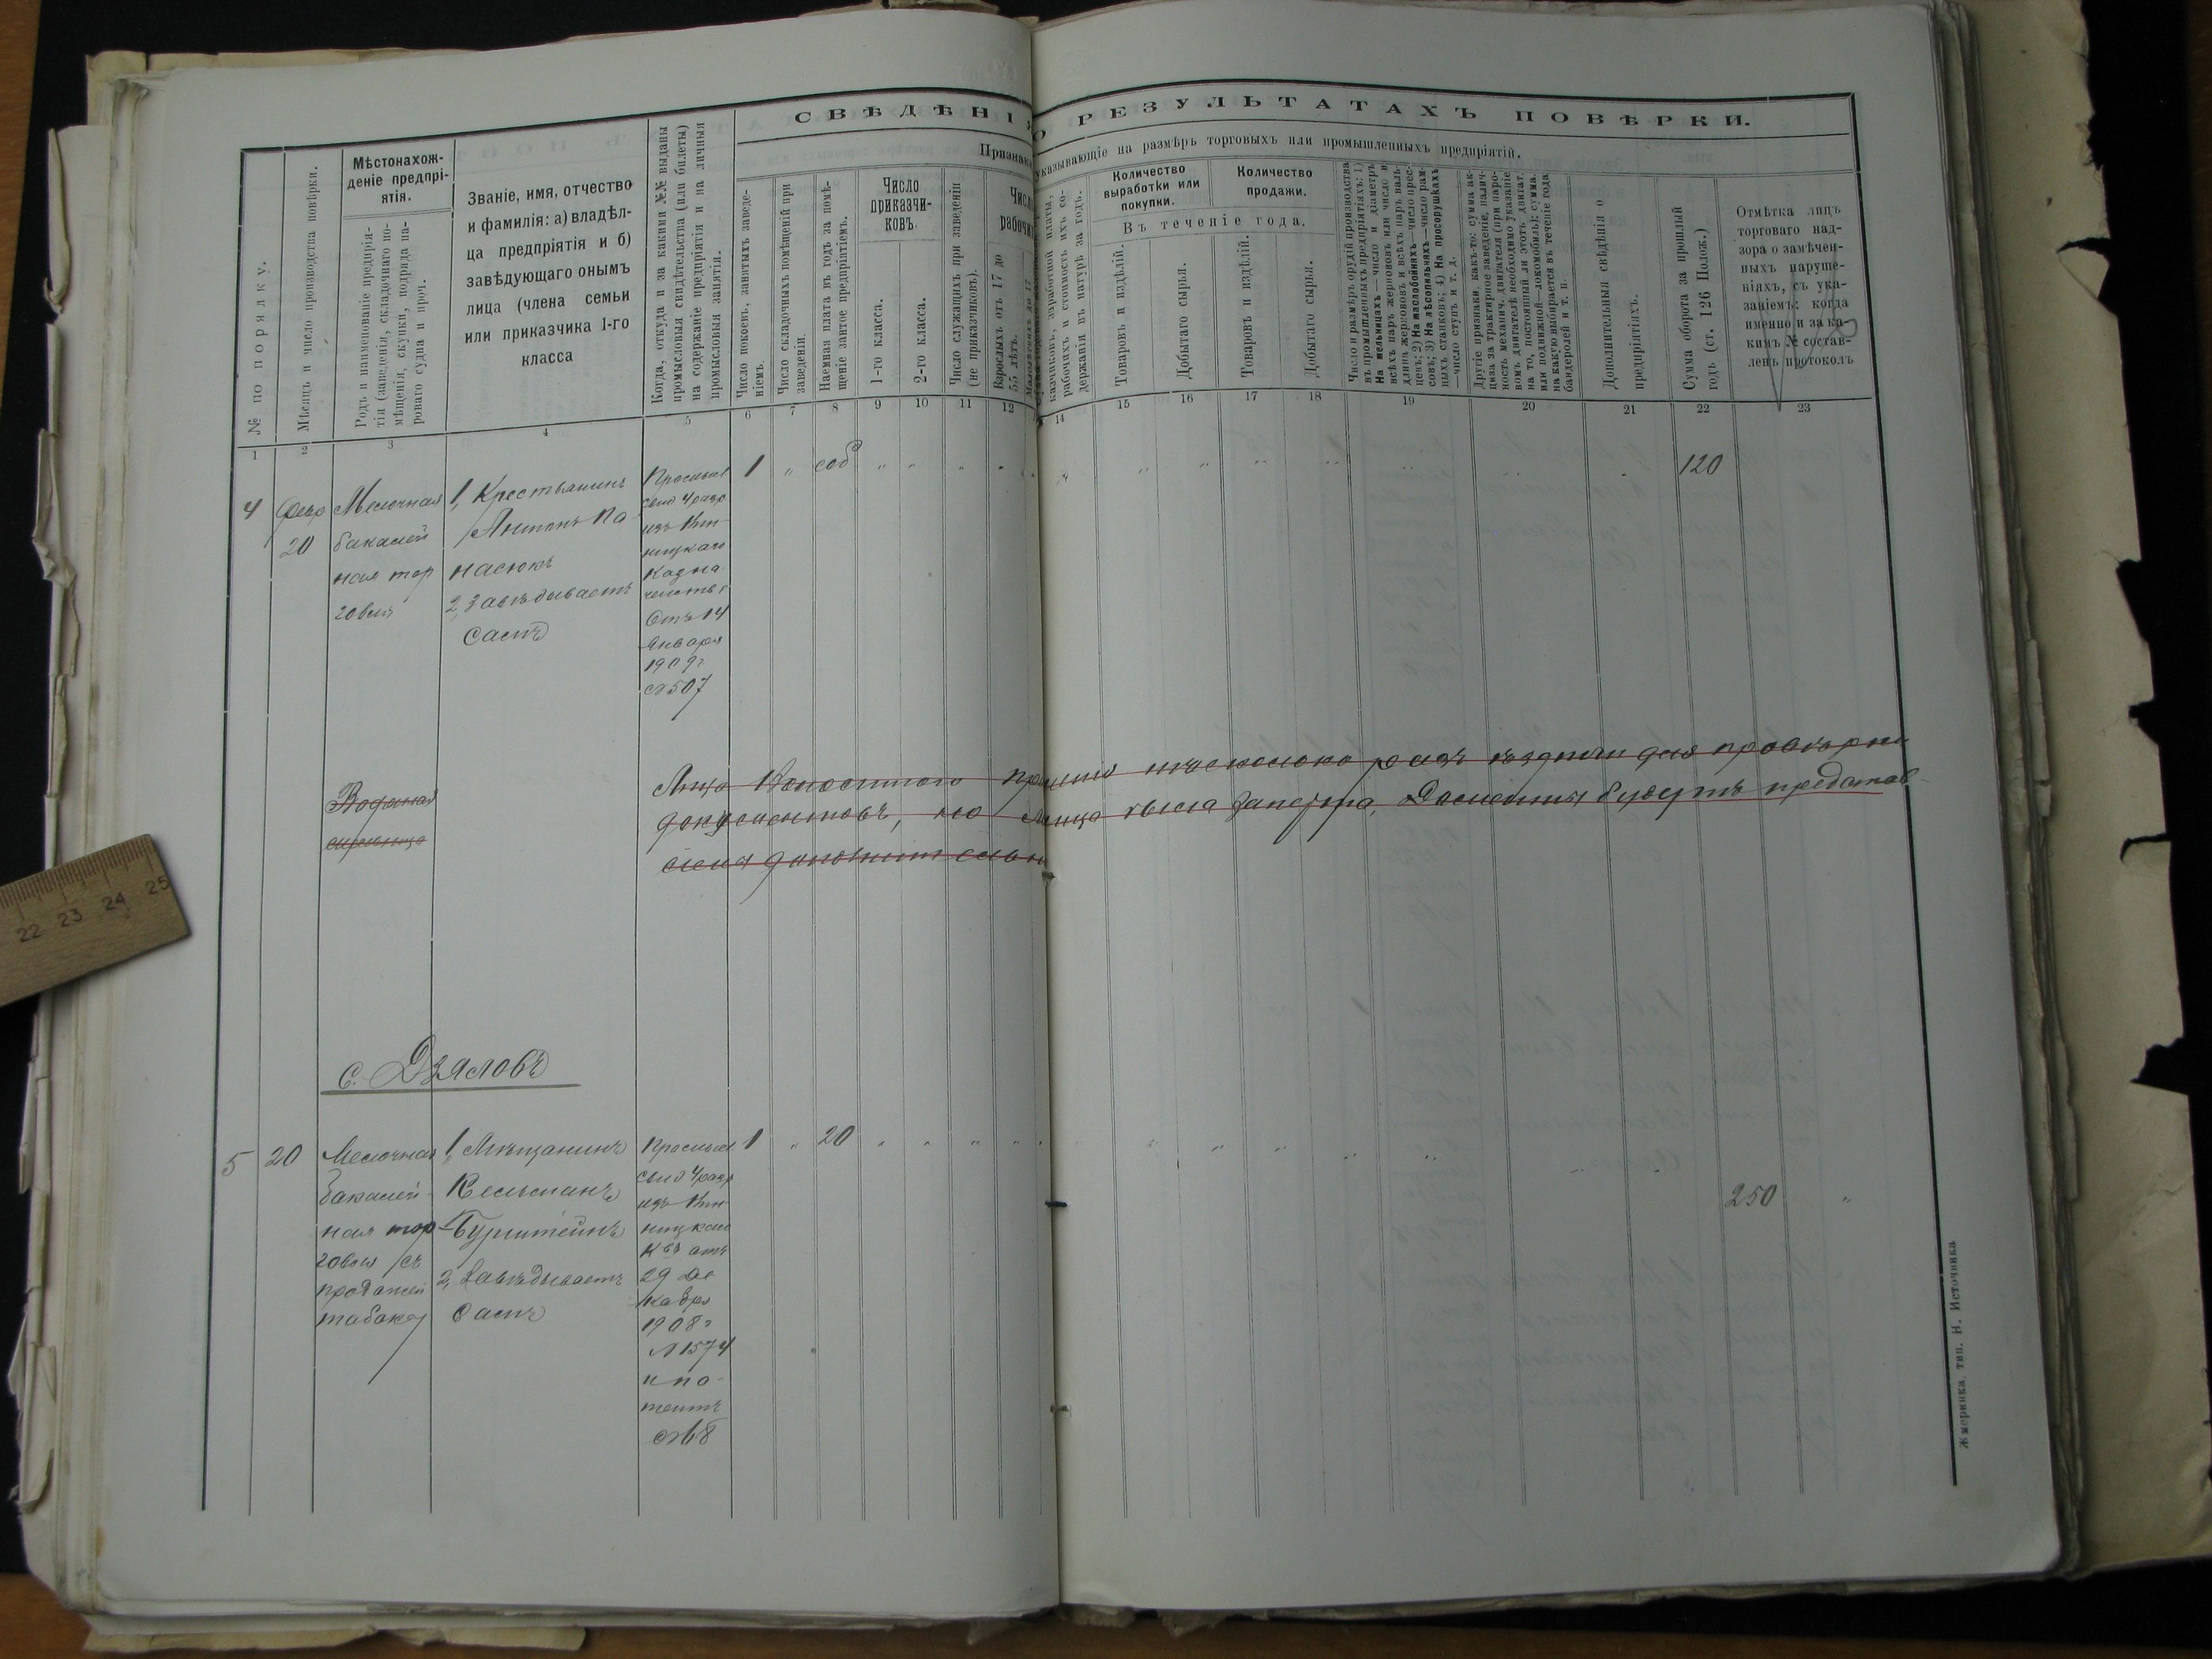 СВѢДѢНІЯ О РЕЗУЛЬТАТАХЪ ПОВѢРКИ.
указывающіе на размѣръ торговыхъ или промышленныхъ предпріятій.
№ по порядку.
Мѣсяцъ и число производства повѣрки.
Мѣстонахож-
деніе предпрі-
ятія.
Родъ и наименованіе предпрія-
тія (заведенія, складочнаго по-
мѣщенія, скупки, подряда па-
роваго судна и проч.
Званіе, имя, отчество
и фамилія: а) владѣл-
ца предпріятія и б)
завѣдующаго онымъ
лица (члена семьи
или приказчика 1-го
класса
Когда, откуда и за какими №№ выданы
промысловыя свидѣтельства (или билеты)
на содержаніе предпріятія и на личныя
промысловыя занятія.
Число покоевъ, занятыхъ заведе-
ніемъ.
Число складочныхъ помѣщеній при
заведеніи.
Наемная плата въ годъ за помѣ-
щеніе занятое предпріятіемъ.
Число
приказчи-
ковъ.
1-го класса.
2-го класса.
Число служащихъ при заведеніи
(не приказчиковъ).
Взрослыхъ отъ 17 до
55 лѣтъ.
казчиковъ, заработной платы,
рабочихъ и стоимость ихъ со-
держанія въ натурѣ за годъ.
Количество
выработки или
покупки.
Количество
продажи.
Въ теченіе года.
Товаровъ и издѣлій.
Добытаго сырья.
Товаровъ и издѣлій.
Добытаго сырья.
Число и размѣръ орудій производства
въ промышленныхъ предпріятіяхъ: 1)
На мельницахъ — число и діаметръ
всѣхъ паръ жернововъ или число и
длина жернововъ и всѣхъ паръ валь-
цевъ; 2) На маслобойняхъ—число прес-
совъ; 3) На лѣсопильняхъ—число рам-
ныхъ станковъ; 4) На просорушкахъ
—число ступъ и т. д.
Другіе признаки, какъ-то: сумма ак-
циза за трактирное заведеніе, налич-
ность механич. двигателя (при паро-
вомъ двигателѣ необходимо указаніе
на то, постоянный ли этотъ двигат.
или подвижной—локомобиль); сумма,
на какую выбирается въ теченіе года
бандеролей и т. п.
Дополнительныя свѣдѣнія о
предпріятіяхъ.
Сумма оборота за прошлый
годъ (ст. 126 Полож.)
Отмѣтка лицъ
торговаго над-
зора о замѣчен-
ныхъ наруше-
ніяхъ, съ ука-
заніемъ: когда
именно и за ка-
кимъ № состав-
ленъ протоколъ
1 2 3 4 5 6 7 8 9 10 11 12 14 15 16 17 18 19 20 21 22 23
4 Февр Мелочная 1, Крестьянинъ Промысл 1 " соб " " " " 120
20 бакалей Антонъ Па- свид 4 разр
ная тор насюкъ изъ Вин-
говля 2, Завѣдываетъ ницкаго
самъ Казна-
чейства
Отъ 14
Января
1909 г
№ 507
Лица Волостного Правленія нѣсколько разъ ѣздили для провѣрки
документовъ, но была заперта, Данныя будутъ представ-
лены дополнительно
с. Дзяловъ
5 20 Мелочная 1, Мѣщанинъ Промысл 1 " 20 " " " "
бакалей- Кельманъ свид 4 разр
ная тор- Бурштейнъ изъ Вин- 250 "
говля съ ницкаго
продажей 2, Завѣдываетъ Кзн отъ
табаку самъ 29 Де
кабря
1908 г
№ 1574
и па-
тентъ
Жмеринка, тип. Н. Источника
22 23 24 25